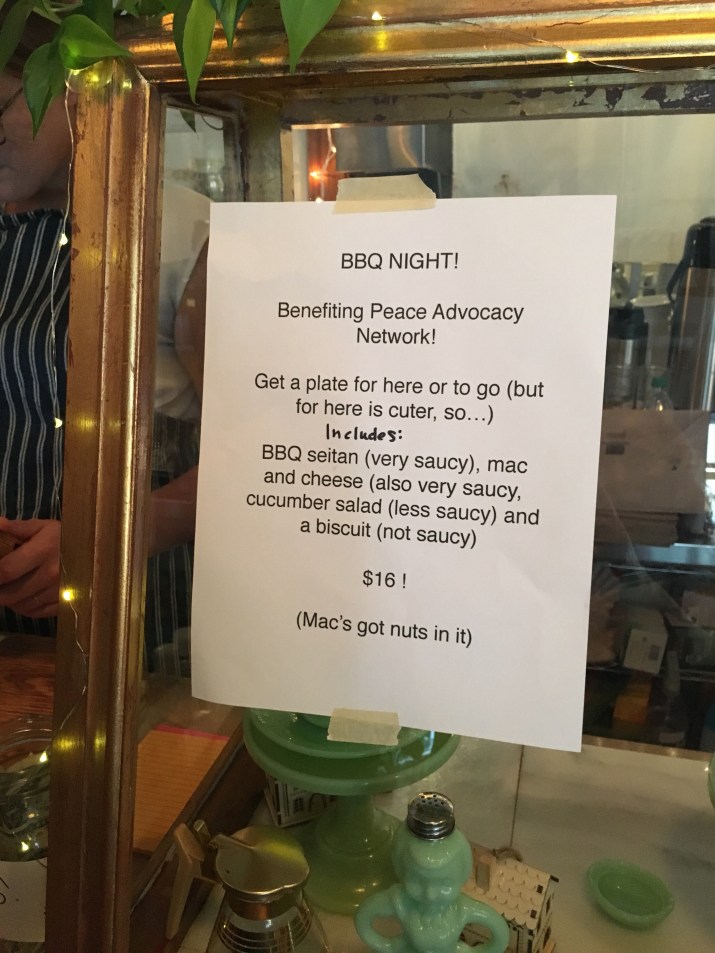 BBQ NIGHT!
Benefiting Peace Advocacy
Network!
Get a plate for here or to go (but
for here is cuter, so...)
Includes:
BBQ seitan (very saucy), mac
and cheese (also very saucy,
cucumber salad (less saucy) and
a biscuit (not saucy)
$16 !
(Mac's got nuts in it)